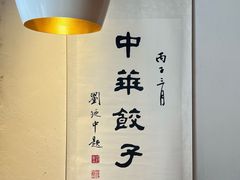 丙子三月
中華餃子
劉延中題